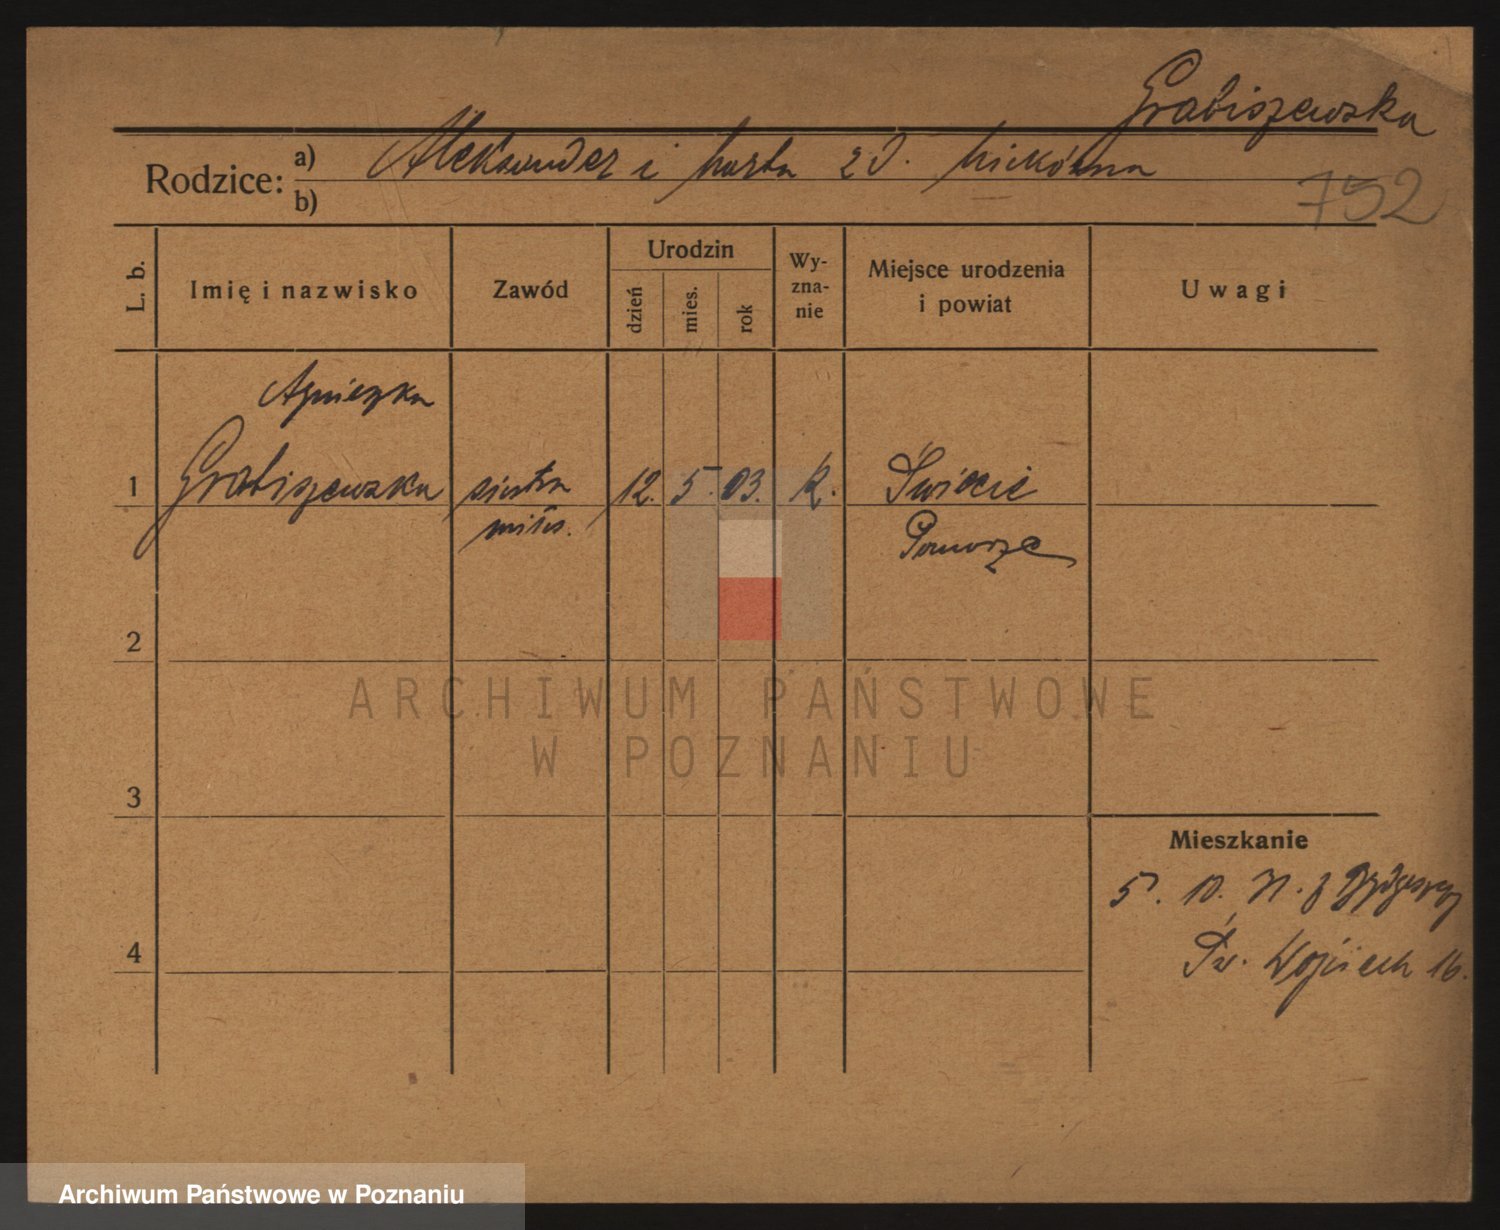 Grabiszewska
Rodzice: a) Aleksander i Marta zd.
b)
752
L. b. Imię i nazwisko Zawód Urodzin dzień mies. rok Wy-zna-nie Miejsce urodzenia i powiat Uwagi
Agnieszka
1 Grabiszewska siostra 12. 5. 03. k. Świecie
miłos. Pomorze
2
3
Mieszkanie
5. z Bydgoszczy
4 Św. Wojciech 16.
ARCHIWUM PAŃSTWOWE
W POZNANIU
Archiwum Państwowe w Poznaniu